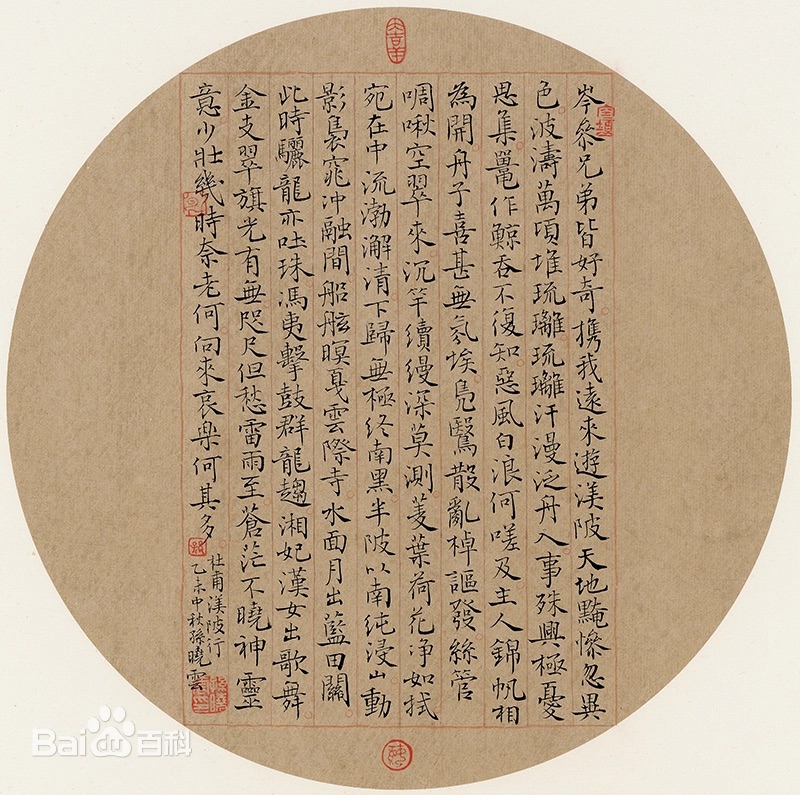 岑叅兄弟皆好奇携我遠來遊渼陂天地黤慘忽異
色波濤萬頃堆琉璃琉璃汗漫泛舟入事殊興極憂
思集鼉作鯨吞不復知惡風白浪何嗟及主人錦帆相
為開舟子喜甚無氛埃鳧鷖散亂棹謳發絲管
啁啾空翠來沉竿續縵深莫測菱葉荷花净如拭
宛在中流渤澥清下歸無極終南黑半陂以南純浸山動
影裊窕冲融間船舷暝戛雲際寺水面月出藍田關
此時驪龍亦吐珠馮夷擊鼓群龍趨湘妃漢女出歌舞
金支翠旗光有無咫尺但愁雷雨至蒼茫不曉神靈
意少壯幾時奈老何向來哀樂何其多
杜甫渼陂行
乙未中秋孫曉雲
大吉羊
Bai百科